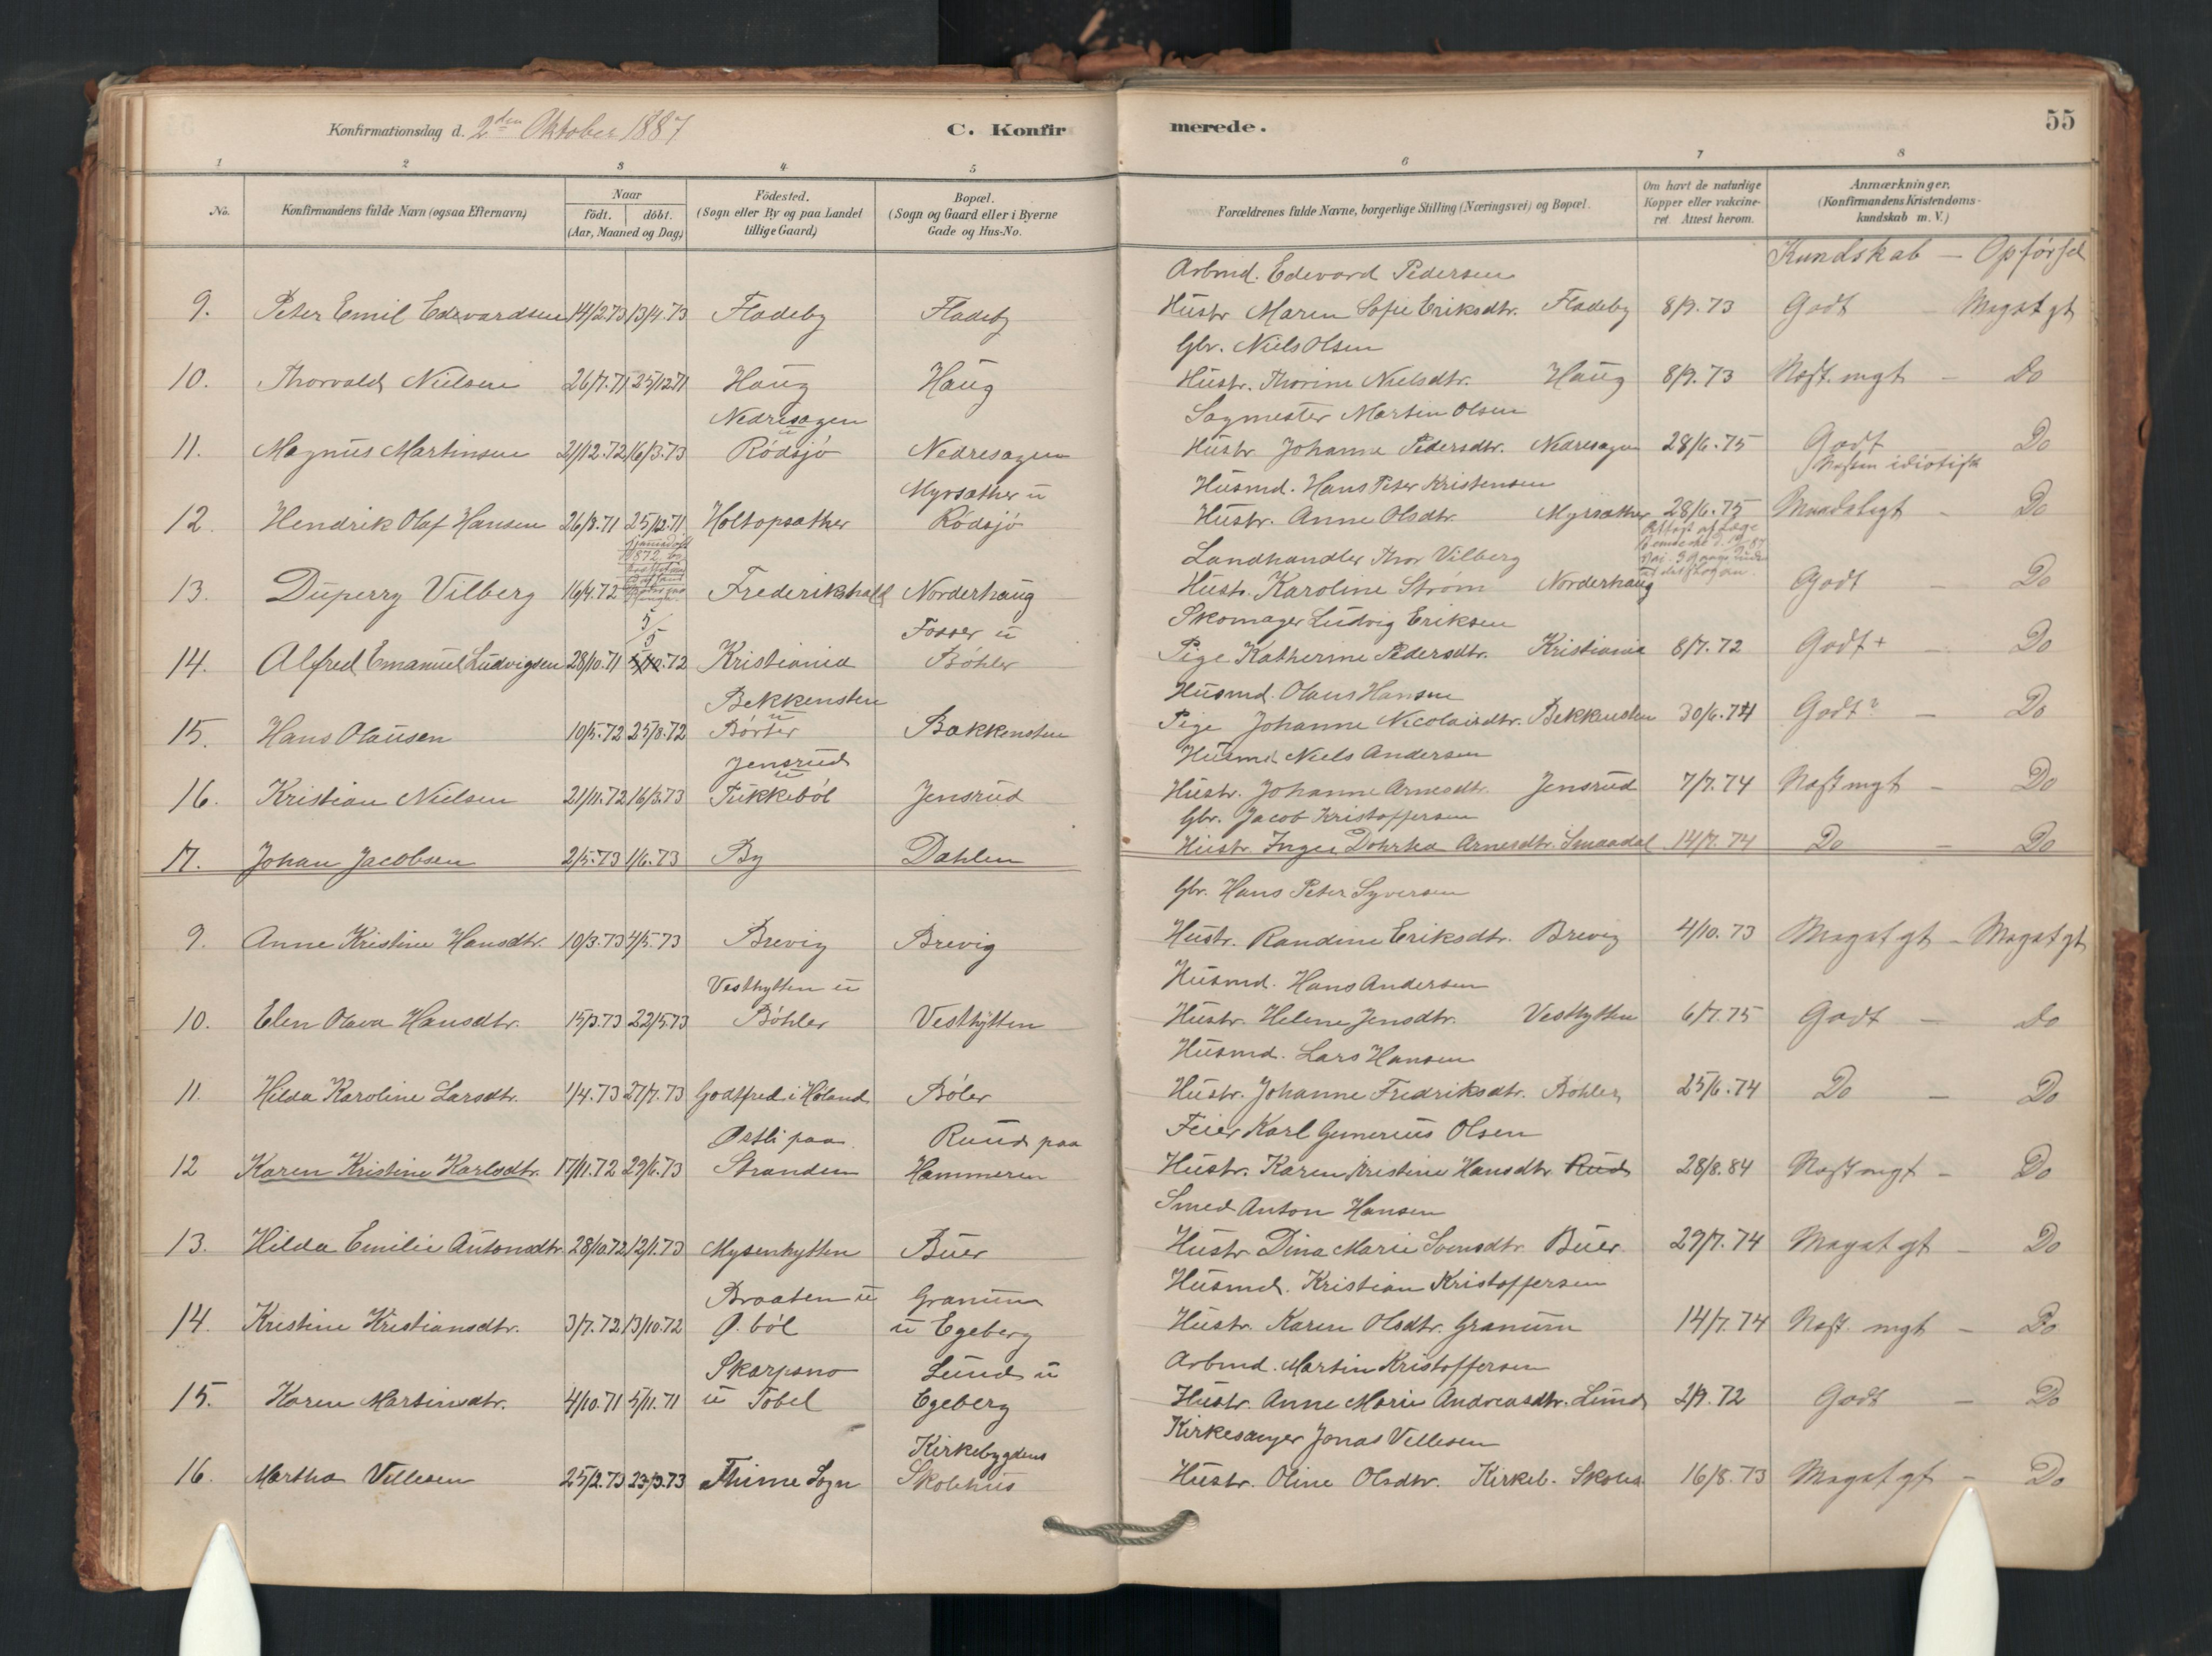 Konfirmationsdag d. 2den Oktober 1887
C. Konfirmerede.
55
1 2 3 4 5 6 7 8
No.
Konfirmandens fulde Navn (ogsaa Efternavn)
Naar
født. døbt.
(Aar, Maaned og Dag)
Fødested.
(Sogn eller By og paa Landet
tillige Gaard)
Bopæl.
(Sogn og Gaard eller i Byerne
Gade og Hus-No.
Forældrenes fulde Navne, borgerlige Stilling (Næringsvei) og Bopæl.
Om havt de naturlige
Kopper eller vakcine-
ret Attest herom.
Anmærkninger.
(Konfirmandens Kristendoms-
kundskab m. V.)
Kundskab — Opførsel
Arbmd. Edevard Pedersen
9. Peter Emil Edevardsen 14/2.73 13/4.73 Fladeby Fladeby Hustr Maren Sofie Eriksdtr. Fladeby 8/9.73 Godt - Megetgt
Gbr. Niels Olsen
10. Thorvald Nielsen 26/7.71 25/12.71 Haug Haug Hustr. Thorine Nielsdtr. Haug 8/9.73 Næst. mgt - Do
Nedresagen Sagmester Martin Olsen
11. Magnus Martinsen 21/12.72 16/3.73 u Rødsjø Nedresagen Hustr Johanne Pedersdtr. Nedresagen 28/6.75 Godt Do
Myrsæther u Husmd. Hans Peter Kristensen Næsten idiotisk
12. Hendrik Olaf Hansen 26/8.71 25/12.71 Holtopsæther Rødsjø Hustr. Anne Olsdtr. Myrsæther 28/6.75 Maadeligt - Do
1872
Landhandler Thor Vilberg
13. Duperry Vilberg 16/4.72 Frederikshald Norderhaug Hustr. Karoline Strøm Norderhaug Godt - Do
5/5 Fosser u Skomager Ludvig Eriksen
14. Alfred Emanuel Ludvigsen 28/10.71 .72 Kristiania Bøhler Pige Katherine Pedersdtr. Kristiania 8/7.72 Godt+ - Do
Bekkensten Husmd. Olaus Hansen
15. Hans Olausen 10/5.72 25/8.72 u Børter Bakkensten Pige Johanne Nicolaisdtr. Bekkensten 30/6.74 Godt? - Do
Jensrud Husmd Niels Andersen
16. Kristian Nielsen 21/11.72 16/3.73 u Tukkebøl Jensrud Hustr. Johanne Arnesdtr. Jensrud 7/7.74 Næst mgt - Do
Gbr. Jacob Kristoffersen
17. Johan Jacobsen 2/5.73 1/6.73 By Dahlen Hustr. Inger Dohrthea Arnesdtr. Smaadal 14/7.74 Do - Do
Gbr. Hans Peter Syversen
9. Anne Kristine Hansdtr. 10/3.73 4/5.73 Brevig Brevig Hustr. Randine Eriksdtr. Brevig 4/10.73 Megetgt - Megetgt
Vesthytten u Husmd. Hans Andersen
10. Elen Olava Hansdtr. 15/3.73 22/5.73 Bøhler Vesthytten Hustr. Helene Jensdtr. Vesthytten 6/7.75 Godt - Do
Husmd. Lars Hansen
11. Hilda Karoline Larsdtr. 1/4.73 27/7.73 Godtfred i Høland Bøler Hustr. Johanne Fredriksdtr. Bøhler 25/6.74 Do - Do
Østli paa Ruud paa Feier Karl Gunerius Olsen
12 Karen Kristine Karlsdtr. 17/11.72 29/6.73 Stranden Hammeren Hustr. Karen Kristine Hansdtr. Rud 28/8.84 Næst mgt - Do
Smed Anton Hansen
13. Hilda Emilie Antonsdtr. 28/10.72 12/1.73 Mysenhytten Buer Hustr Dina Marie Svensdtr. Buer. 29/7.74 Megetgt - Do
Braaten u Granum Husmd. Kristian Kristoffersen
14. Kristine Kristiansdtr. 3/7.72 13/10.72 Ø. bøl u Egeberg Hustr. Karen Olsdtr. Granum 14/7.74 Næst. mgt - Do
Skarpsno Lund u Arbmd. Martin Kristoffersen
15. Karen Martinsdtr. 4/10.71 5/11.71 u Tobel Egeberg Hustr. Anne Marie Andreasdtr. Lund 2/9.72 Godt - Do
Kirkebygdens Kirkesanger Jonas Vellesen
16. Martha Vellesen 25/2.73 23/3.73 Thime Sogn Skolehus Hustr. Oline Olsdtr. Kirkeb. Skoles 16/8.73 Megetgt - Do